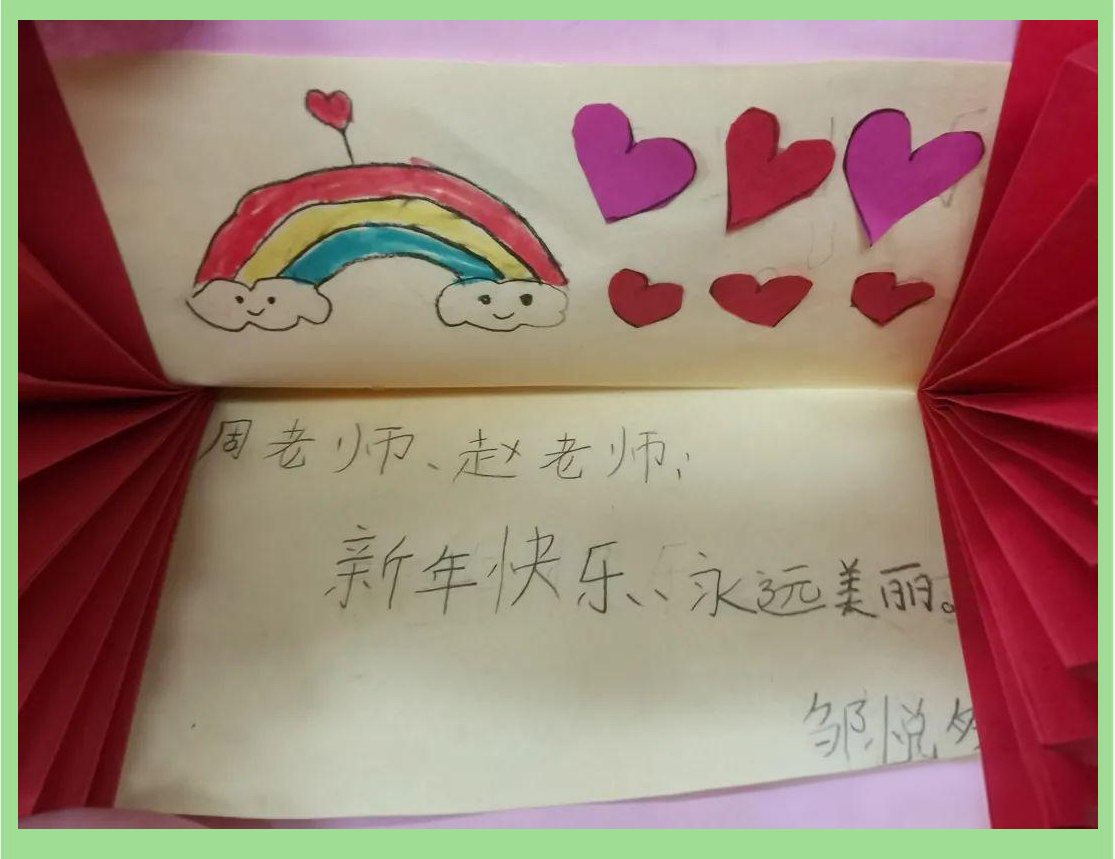 周老师、赵老师，
新年快乐、永远美丽。
邹悦